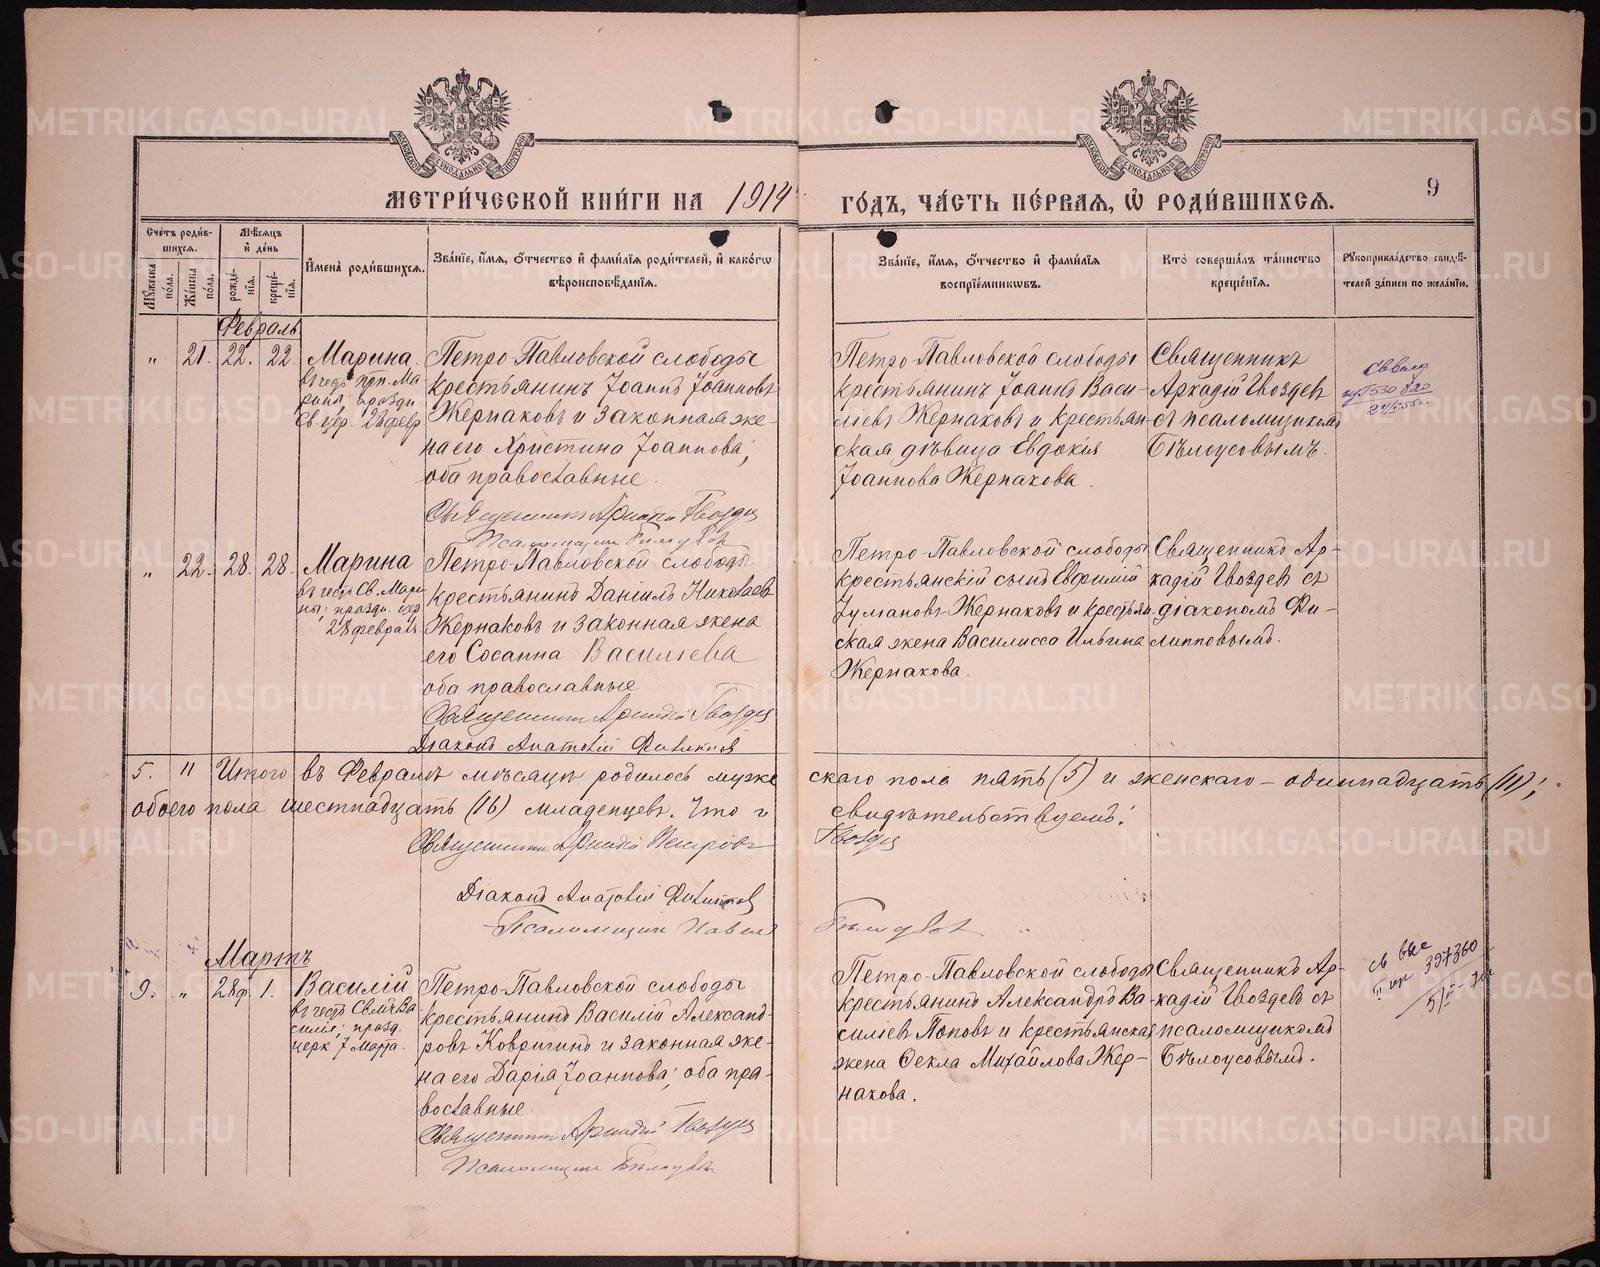 МЕТРИЧЕСКОЙ КНИГИ НА 1914 ГОДЪ, ЧАСТЬ ПЕРВАЯ, Ѿ РОДИВШИХСЯ.
9
Счетъ родившихся.
Мужеска пола.
Женска пола.
Мѣсяцъ и день
рожденія.
крещенія.
Имена родившихся.
Званіе, имя, отчество и фамилія родителей, и какогѡ
вѣроисповѣданія.
Званіе, имя, отчество и фамилія
воспріемниковъ.
Кто совершалъ таинство
крещенія.
Рукоприкладство свидѣ-
телей записи по желанію.
Февраль
" 21. 22. 22.
Марина
въ честь прп. Ма
рины, праздн.
Св. цер. 28 февр
Петро-Павловской слободы
крестьянинъ Іоаннъ Іоанновъ
Жернаковъ и законная же-
на его Христина Іоаннова;
оба православные.
Священникъ Аркадій Гвоздев
Псаломщик Белоусов
Петро-Павловской слободы
крестьянинъ Іоаннъ Васи-
ліевъ Жернаковъ и крестьян-
ская дѣвица Евдокія
Іоаннова Жернакова.
Священникъ
Аркадій Гвоздевъ
съ псаломщикомъ
Бѣлоусовымъ.
" 22. 28. 28.
Марина
въ честь Св. Мари
ны; праздн. цер
28 февраля
Петро-Павловской слободы
крестьянинъ Даніилъ Николаевъ
Жернаковъ и законная жена
его Сосанна Васильева
оба православные
Священник Аркадій Гвоздев
Діаконъ Анатолій Филиппов
Петро-Павловской слободы
крестьянскій сынъ Евфимій
Жернаковъ и крестьян
ская жена Василисса Ильина
Жернакова.
Священникъ Ар-
кадій Гвоздевъ съ
діакономъ Фи-
липповымъ.
5. 11 Итого въ Февралѣ мѣсяцѣ родилось муже скаго пола пять (5) и женскаго - одиннадцать (11);
обоего пола шестнадцать (16) младенцевъ. Что и свидѣтельствуемъ:
Священник Аркадій Петровъ Гвоздев
Діаконъ Анатолій Филиппов
Псаломщик Павел Белоусов
Мартъ
9. " 28ф 1.
Василій
въ честь Свмч. Ва
силія; празд.
церк. 7 Марта.
Петро-Павловской слободы
крестьянинъ Василій Александ-
ровъ Ковригинъ и законная же-
на его Дарія Іоаннова; оба пра-
вославные.
Священник Аркадій Гвоздев
Псаломщик Белоусов
Петро-Павловской слободы
крестьянинъ Александръ Ва-
силіевъ Поповъ и крестьянская
жена Ѳекла Михайлова Жер-
накова.
Священникъ Ар-
кадій Гвоздевъ съ
псаломщикомъ
Бѣлоусовымъ.
св вые
397360
METRIKI.GASO-URAL.RU